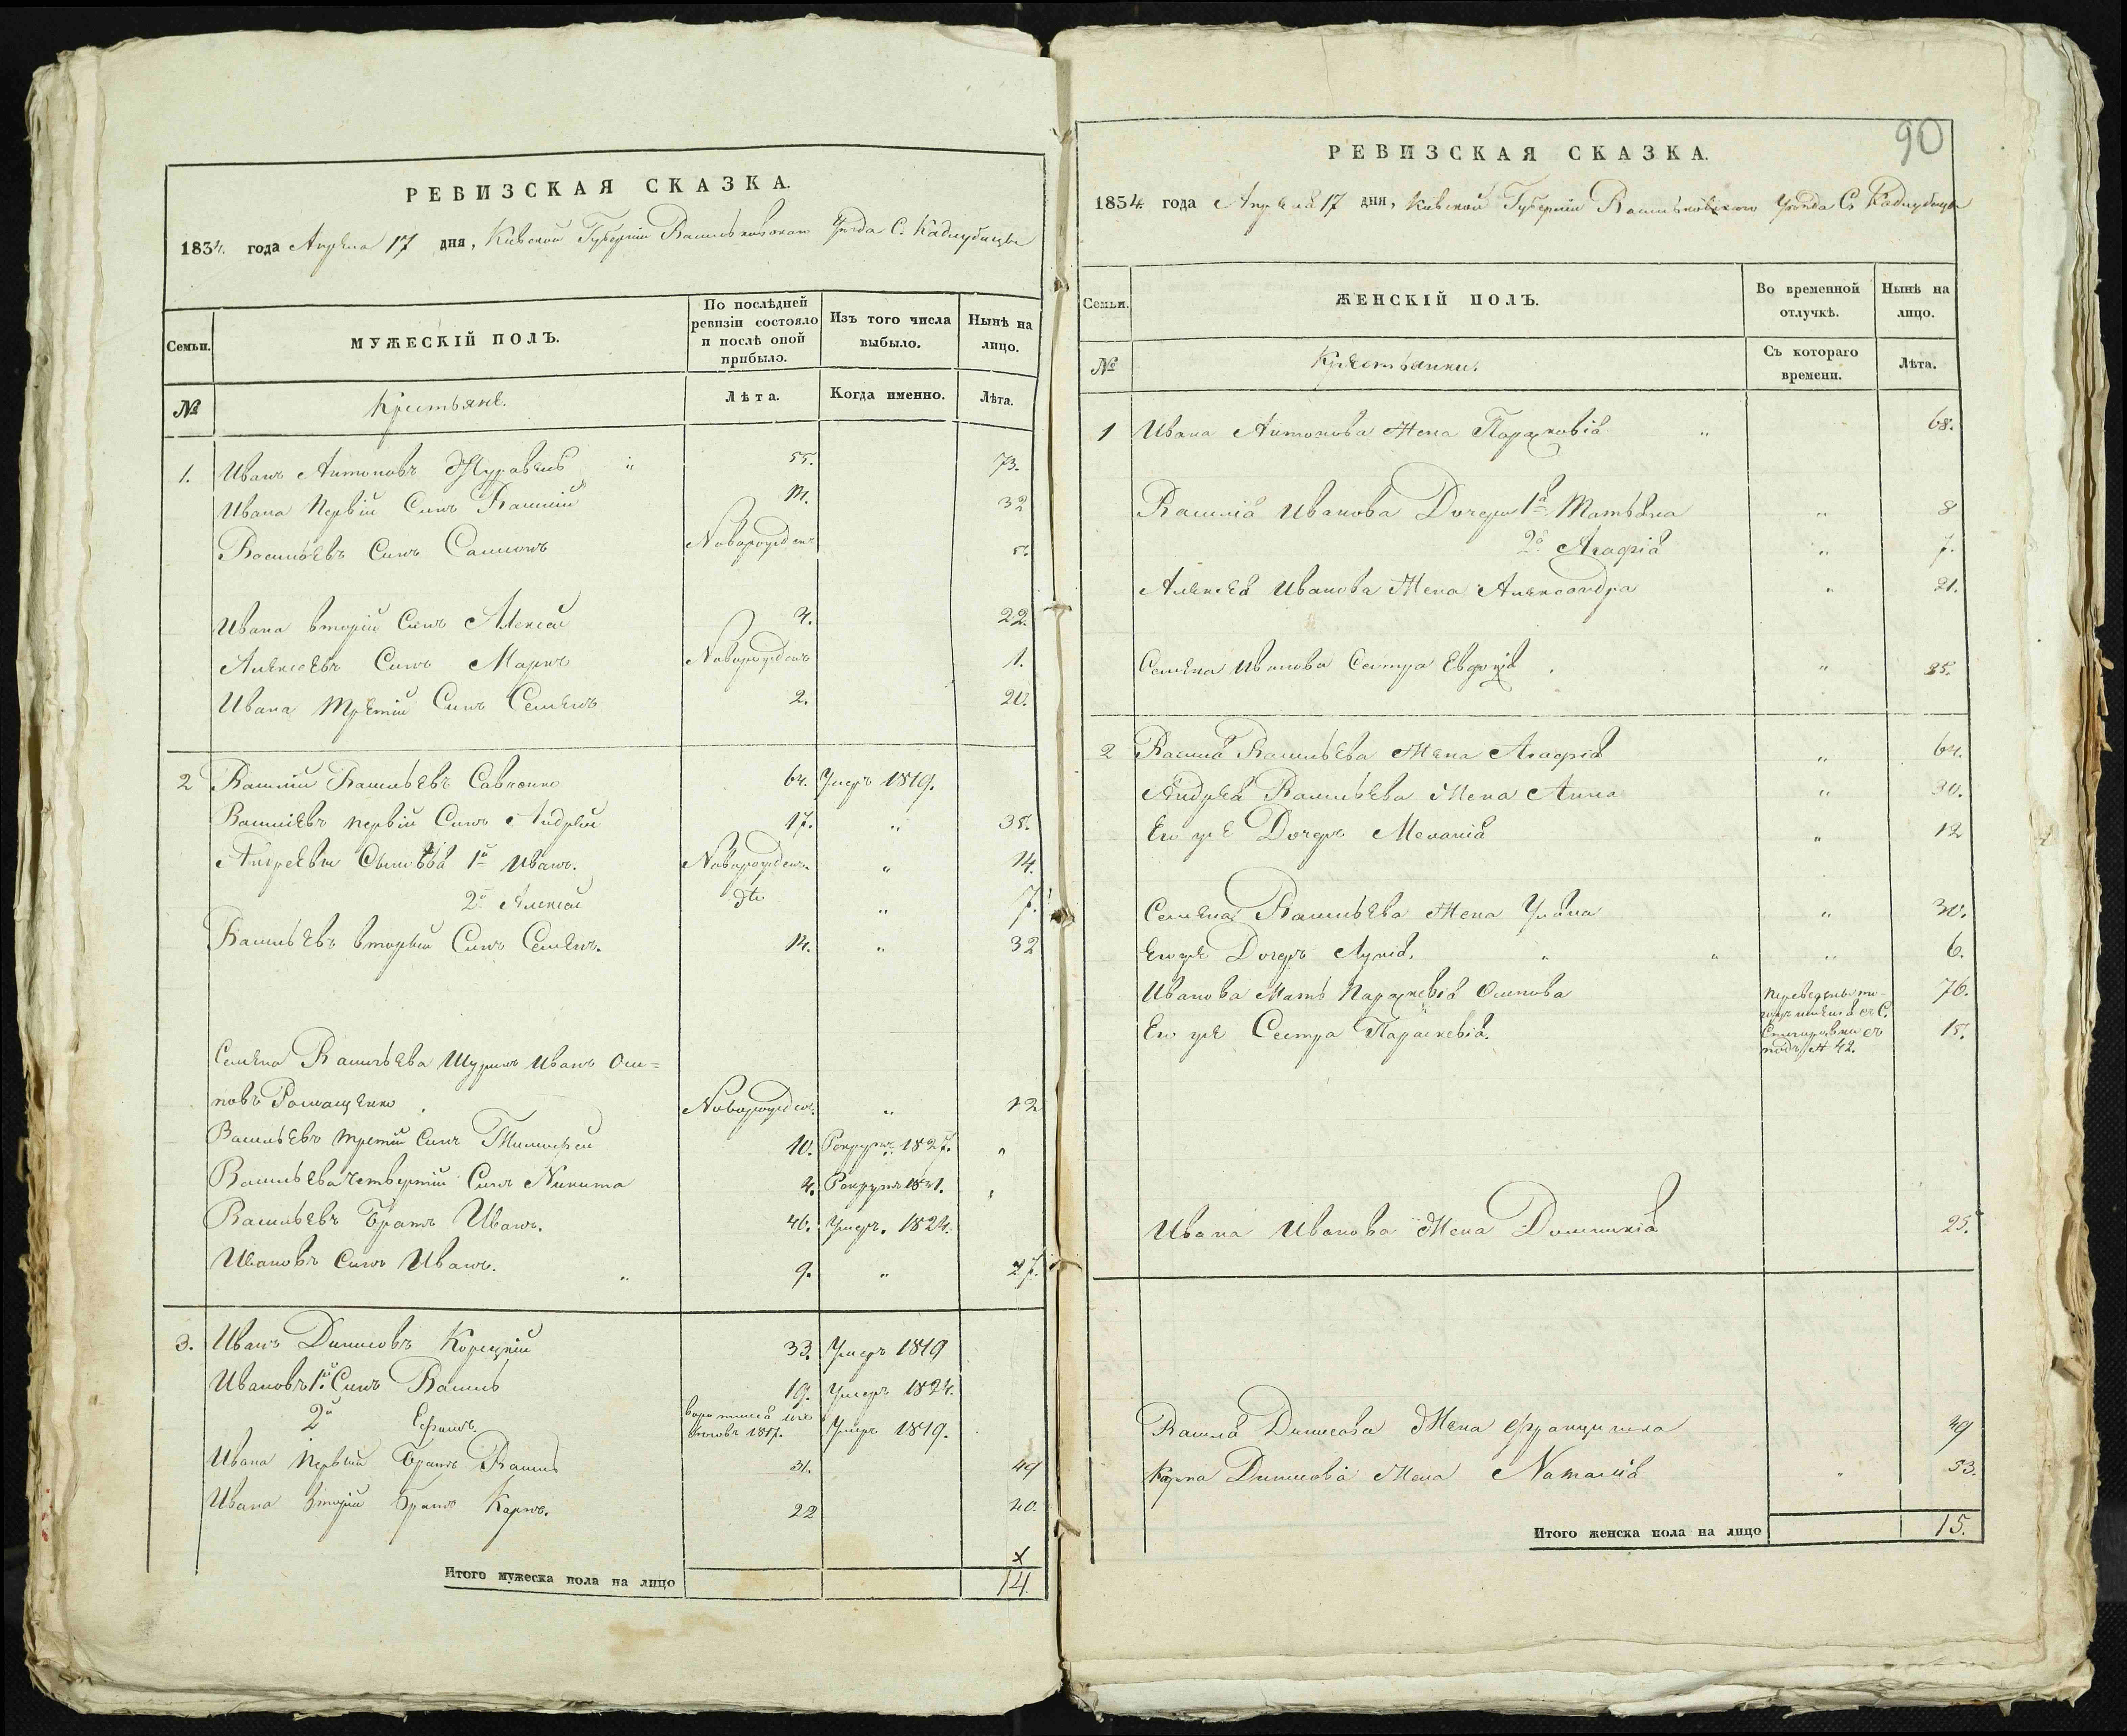 РЕВИЗСКАЯ СКАЗКА.
1834. года Апреля 17 дня, Киевской Губернии Васильковского Уезда С. Кадлубицы
Семьи.
МУЖЕСКІЙ ПОЛЪ.
По послѣдней ревизіи состояло и послѣ оной прибыло.
Изъ того числа выбыло.
Нынѣ на лицо.
№
Крестьяне.
Лѣта.
Когда именно.
Лѣта.
1. Иванъ Антоновъ Журавель 55. 73.
Ивана Первій Синъ Василій 14. 32
Васильевъ Синъ Самсонъ Новорожденъ 5.
Ивана вторій Синъ Алексей 4. 22.
Алексеевъ Синъ Марко Новорожденъ 1.
Ивана Третій Синъ Семенъ 2. 20.
2 Василій Васильевъ Савченко 64. Умеръ 1819.
Василіевъ первій Синъ Андрей 17. " 35.
Андреевы Сыновья 1й Иванъ. Новорожден. " 14.
2й Алексей " 7.
Васильевъ вторый Синъ Семенъ. 14. " 32
Семена Васильева Шуринъ Иванъ Оси=
повъ Ромащенко Новорожден. " 12
Васильевъ третій Синъ Тимофей 10. Рекрутъ 1827. "
Васильева Четвертій Синъ Никита 4. Рекрутъ 1831. "
Васильевъ Братъ Иванъ. 46. Умеръ. 1824.
Ивановъ Синъ Иванъ. " 9. " 27.
3. Иванъ Динисовъ Корецкій 33. Умеръ 1819
Ивановъ 1й Синъ Василь 19. Умеръ 1824.
2й Ефимъ 1817. Умеръ 1819.
Ивана Первый Братъ Василь 31. 49
Ивана Вторій Братъ Карпъ. 22 40.
Итого мужеска пола на лицо 14.
90
РЕВИЗСКАЯ СКАЗКА.
1834. года Апреля 17 дня, Киевской Губерніи Васильковского Уезда С. Кадлубицы
Семьи.
ЖЕНСКІЙ ПОЛЪ.
Во временной отлучкѣ.
Нынѣ на лицо.
№
Крестьянки.
Съ котораго времени.
Лѣта.
1 Ивана Антонова Жена Парасковія " 68.
Василія Иванова Дочери 1я Татьяна " 8
2я Агафія " 7.
Алексея Иванова Жена Александра " 21.
Семена Иванова Сестра Евдокія " 25.
2 Василія Васильева Жена Агафія " 64.
Андрея Васильева Жена Анна " 30.
Его же Дочерь Меланія " 12
Семена Васильева Жена Уляна " 30.
Его же Дочерь Лукія. " 6.
Иванова Мать Параскевія Осипова 76.
Его же Сестра Параскевія. 15.
подъ № 42.
Ивана Иванова Жена Домникія 25.
Василя Динисова Жена Францишка 49
Карпа Динисова Жена Наталія " 53.
Итого женска пола на лицо 15.